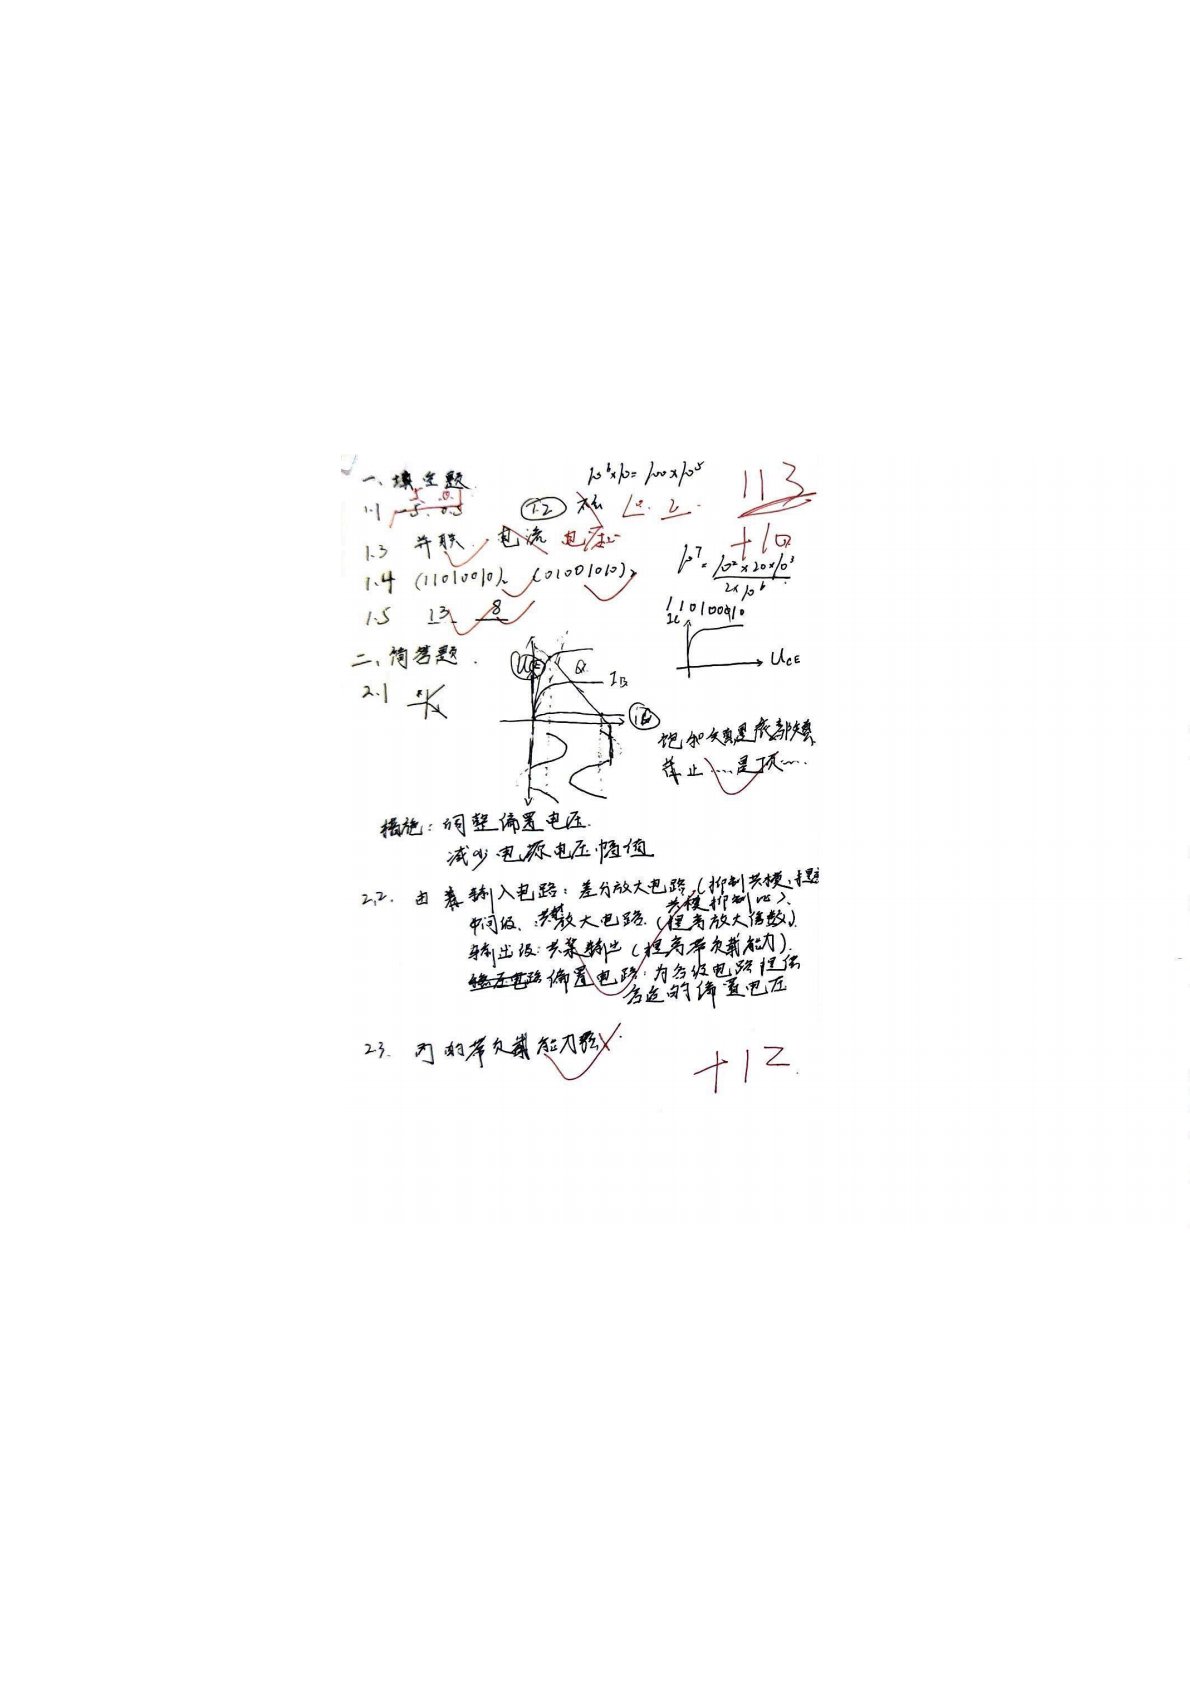 一、填空题
10⁶×10=100×10⁵
113
5 0.1
1.1 -5. 0.5
1.2
+10
1.3 并联 电流 电压
10⁷=10²×20×10³
2×10⁶
1.4 (11010010)₂ (01001010)₂
1.5 13 8
110100010
二、简答题.
UCE
Q
IB
iB
Ic
UCE
2.1
饱和失真是底部失真
截止……是顶……
措施:调整偏置电压.
减少电源电压幅值
2.2. 由 输入电路:差分放大电路(抑制共模、提高
共模抑制比).
中间级、共射放大电路.(提高放大倍数).
输出级:共集输出(提高带负载能力).
偏置电路:为各级电路提供
合适的偏置电压
2.3. 丙的带负载能力强.
+12